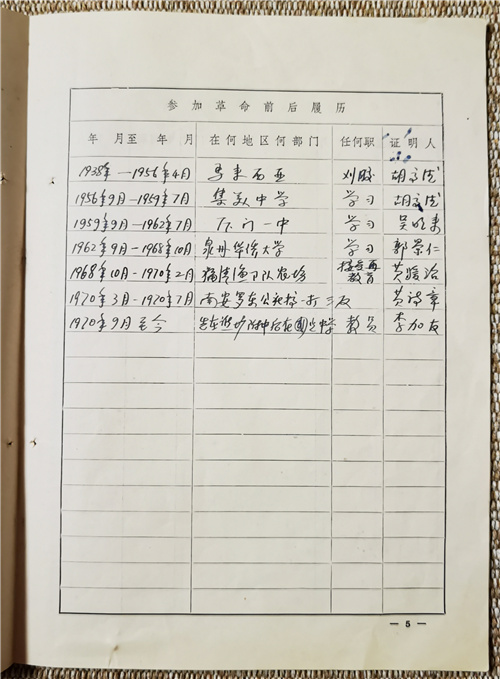 参加革命前后履历
年 月至 年 月 在何地区何部门 任何职 证明人
1938年—1956年4月 马来西亚 刈胶
1956年9月—1959年7月 集美中学 学习
1959年9月—1962年7月 厦门一中 学习
1962年9月—1968年10月 泉州华侨大学 学习 郭荣仁
1968年10月—1970年2月 农场 接受再教育 黄
1970年3月—1970年7月 南安 公社 一打三反 黄诗章
1970年9月至今 中学 教员 李加友
— 5 —